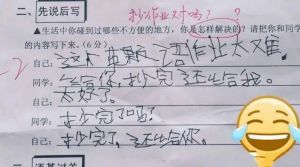 抄作业对吗？
二、先说后写
▲生活中你碰到过哪些不方便的地方，你是怎样解决的？请把你和同
的内容写下来。(6分)
-2
自己：这 语作业太难。
同学：给你，抄完还给我。
自己：太好了。
同学：抄完了吗？
自己：抄完了，还给你。